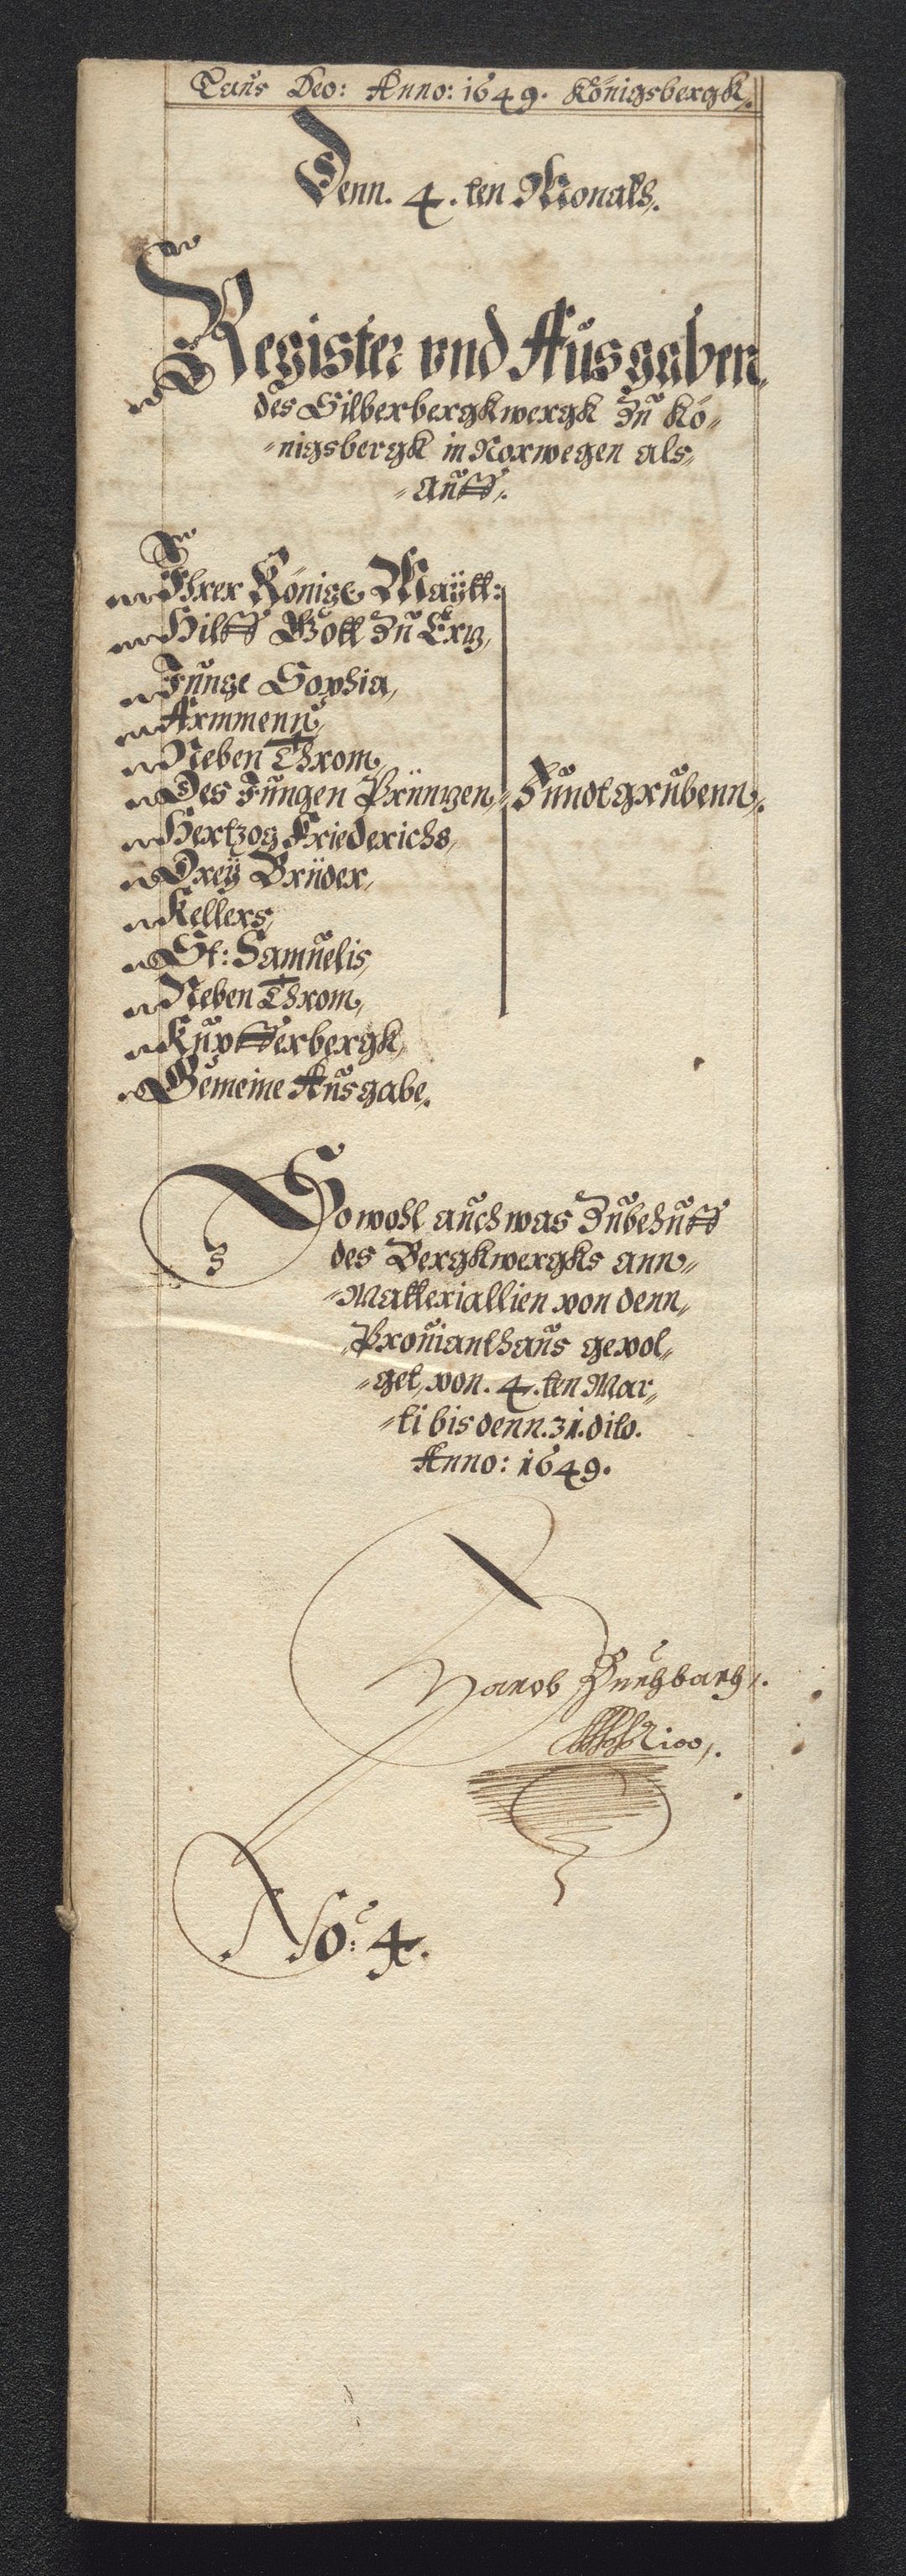 Laus Deo: Anno: 1649. Königsbergk,.
Denn. 4. ten Monats,.
Register vnd Aŭsgaben,
des Silberbergkwergk Zŭ Kö„
„nigsbergk in Norwegen als,
„aŭff,.
Ihrer Königl Maÿtt:
Hilff Gott Zŭ Ertz,
Jŭnge Sophia,
Armmenn,
Neben Throm,
Des Jŭngen Printzen, Fŭndtgrŭbenn,.
Hertzog Friederichs,
Dreÿ Brüder,
Kellers,
St: Samŭelis,
Neben Throm,
Kŭpfferbergk,
Gemeine Aŭsgabe,.
So wohl aŭch was Zŭbehŭff
des Bergkwergks ann„
„Matteriallien von denn,
Proŭianthaŭs gevol„
„get, von. 4. ten Mar„
„ti bis denn. 31. dito.
Anno: 1649.
Jacob
No: 4.